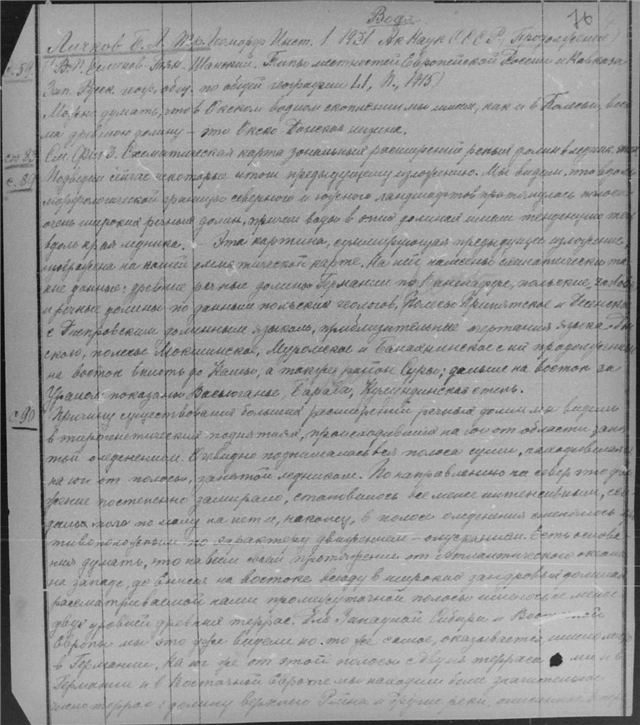 Вода
76
Личков Б. Л. Геоморф. Инст. 1 1931 Ак Наук СССР. (Продолжение)
с. 59. В. П. Семенов Тян-Шанский. Типы местностей Европейской России и Кавказа
Зап. Русск. геогр. общ. по общей географии LI, II, 1915)
Можно думать, что в Окском водном скоплении мы имеем, как и в Полесьи, весь
ма древнюю долину — это Окско Донская
ст. 83 См. Фиг 3. Схематическая карта зональных расширений речных долин в ледник.
с. 89 Подведем сейчас некоторые итоги предыдущему изложению. Мы видим, что вдоль
морфологической границы северного и южного ландшафтов протянулась полоса
очень широких речных долин, причем воды в этих долинах имеют тенденцию течь
вдоль края ледника. Эта картина, суммирующая предыдущее изложение,
изображена на нашей схематической карте. На ней нанесены схематически та
кие данные: древние речные долины Германии по польские,
и речные долины по данным польских геологов, Полесье Припятское и Деснянское
с Днепровским долинным языком, приблизительные очертания языка
ского, полесье Мокшинское, Муромское и Балахнинское с их продолжением
на восток вплоть до а также район Суры; дальше на восток за
Уралом показаны Васюганье, Бараба, Кулундинская степь.
с. 90 Причину существования больших расширений речных долин мы видели
в эпирогенетических поднятиях, происходивших на юг от области заня
той оледенением. Очевидно поднималась вся полоса суши, находившаяся
на юг от полосы, занятой ледником. По направлению на север это дви
жение постепенно замирало, становилось все менее интенсивным, сво
дилось мало по малу на нет и, наконец, в полосе оледенения сменялось
тивоположным по характеру движением — опусканием. Есть основа
ния думать, что на всем своем протяжении от Атлантического океана
на западе, до Енисея на востоке всюду в широких зандровых долинах
рассматриваемой нами промежуточной полосы имелось не менее
двух уровней древних террас. Для Западной Сибири и Восточной
Европы мы это уже видели но то же самое, оказывается, имело место
в Германии. На юг же от этой полосы с двумя террасами мы и в
Германии и в Восточной Европе мы находим более значительное
число террас: долину верхнего Рейна и другие реки,